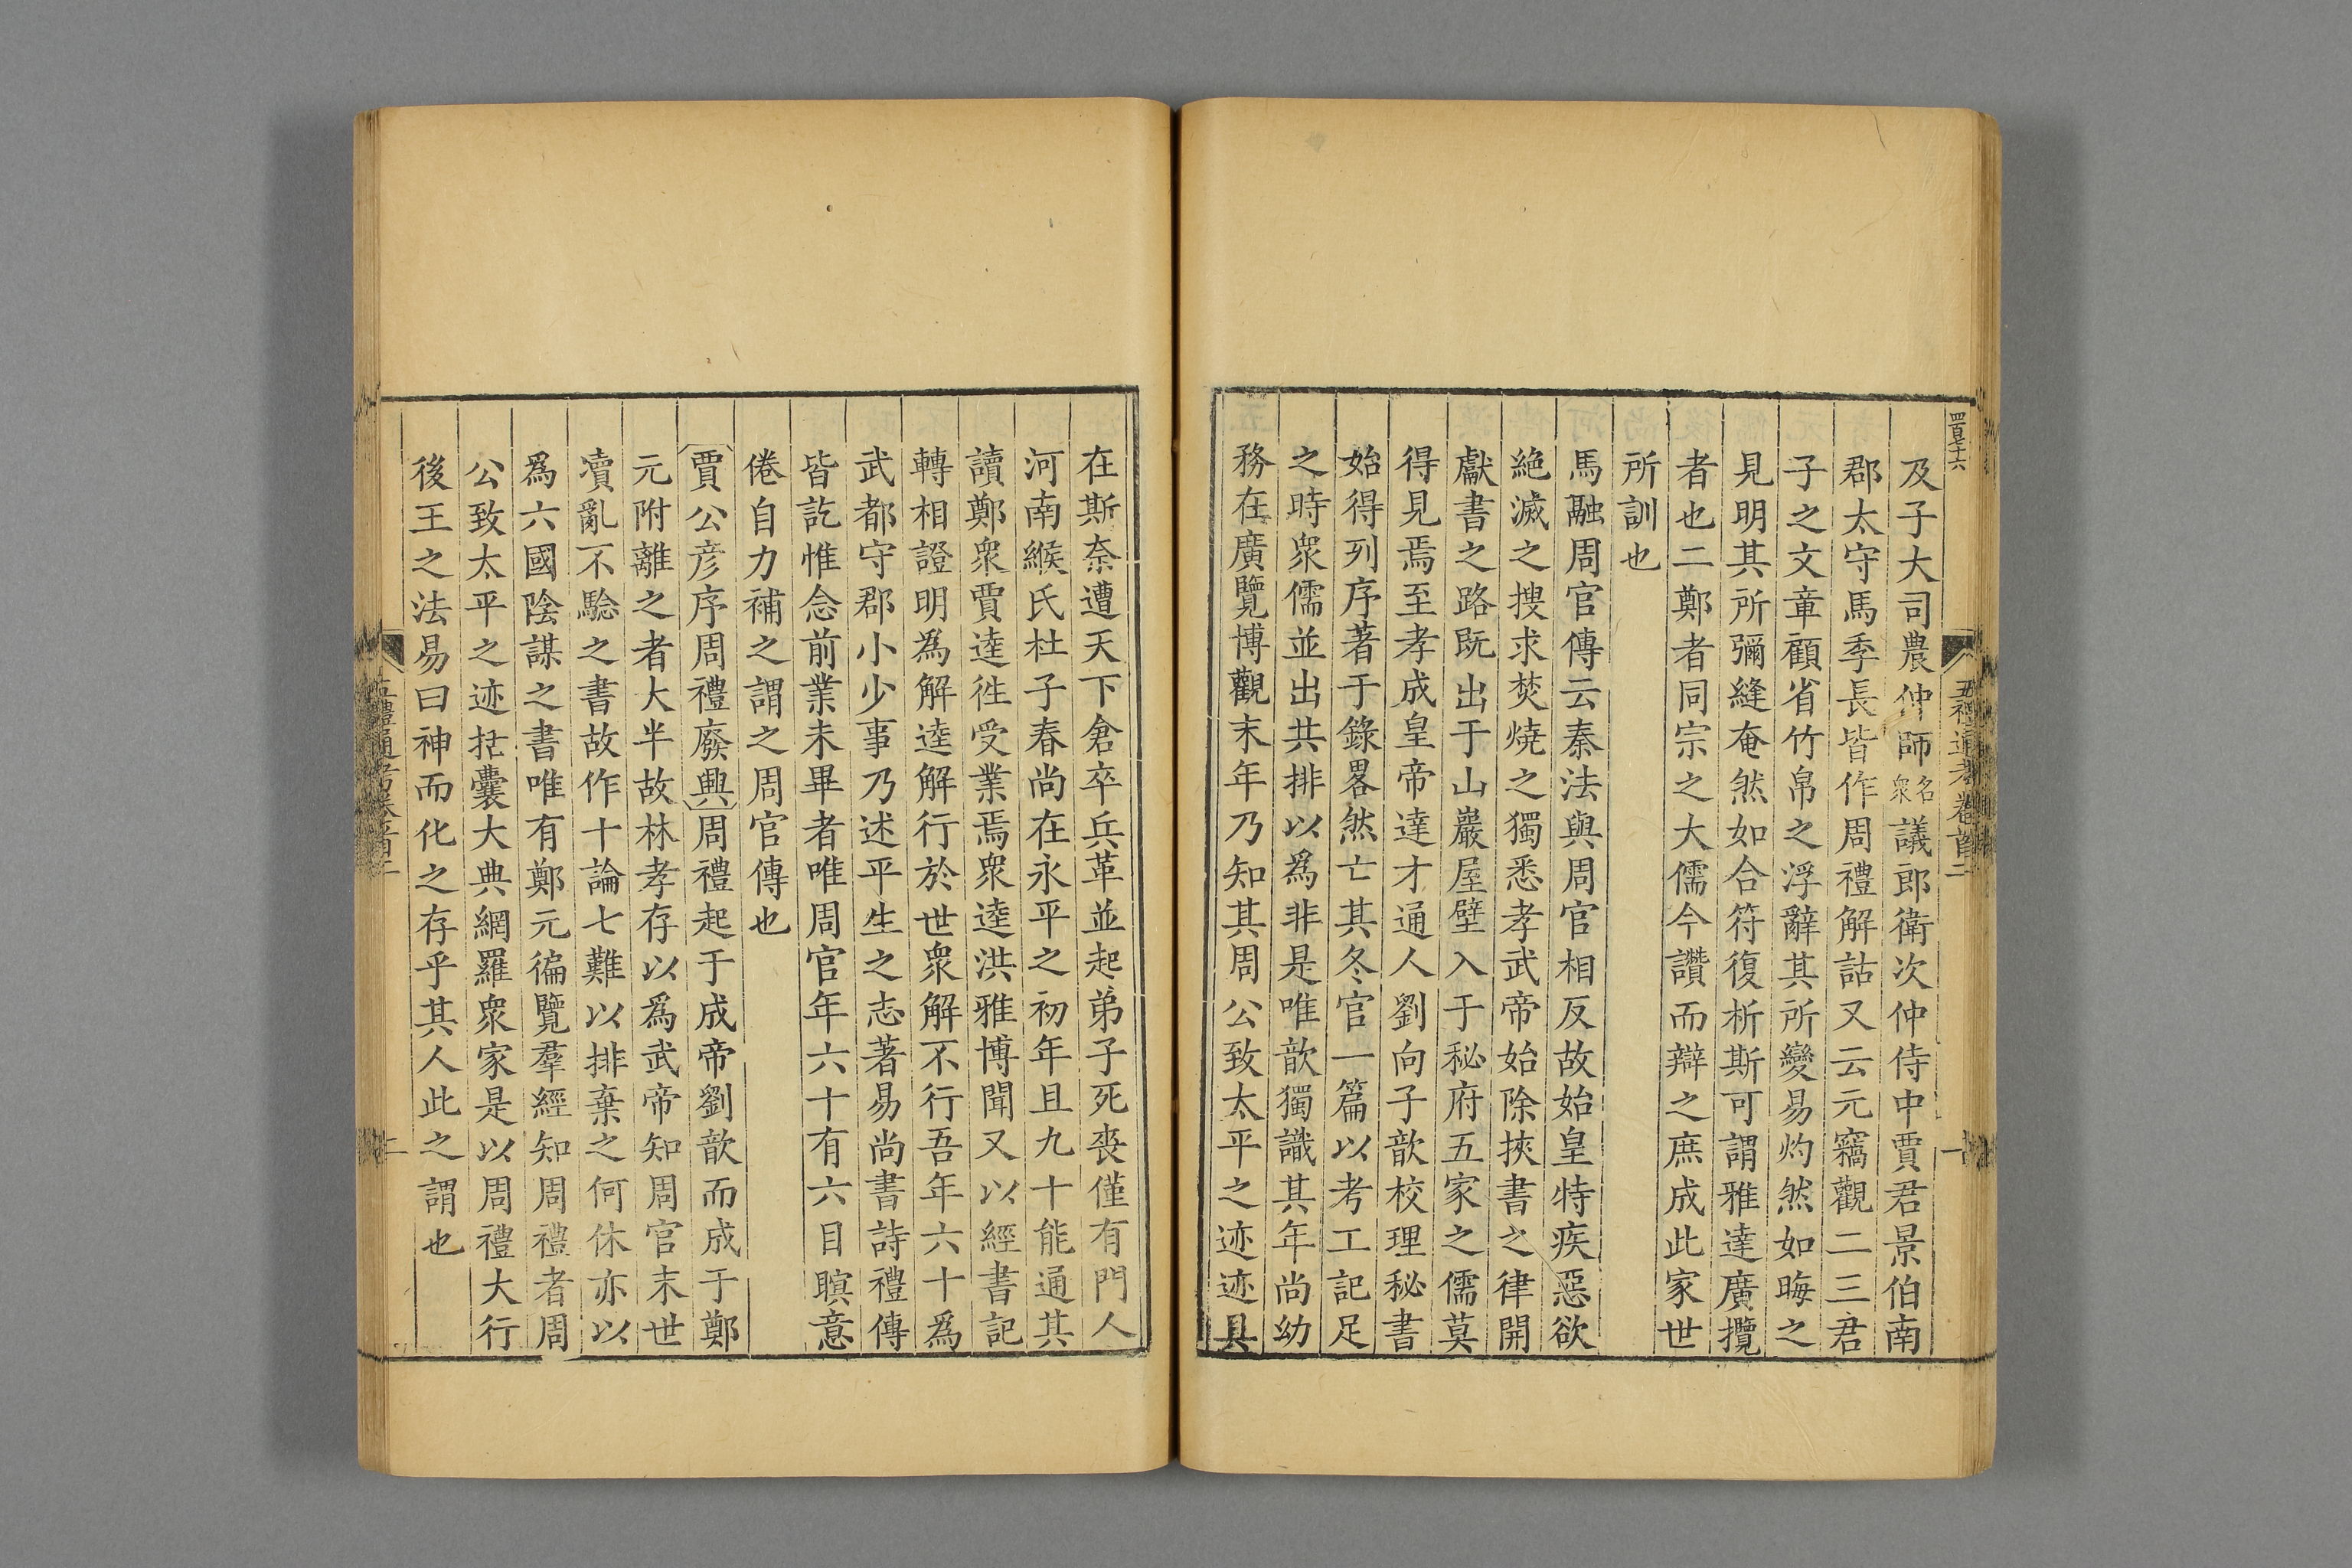 四百七十六
五禮通考卷首二
及子大司農仲師名衆議郎衛次仲侍中賈君景伯南
郡太守馬季長皆作周禮解詁又云元竊觀二三君
子之文章顧省竹帛之浮辭其所變易灼然如晦之
見明其所彌縫奄然如合符復析斯可謂雅達廣攬
者也二鄭者同宗之大儒今讚而辯之庶成此家世
所訓也
馬融周官傳云秦法與周官相反故始皇特疾惡欲
絶滅之搜求焚燒之獨悉孝武帝始除挾書之律開
獻書之路既出于山巖屋壁入于秘府五家之儒莫
得見焉至孝成皇帝達才通人劉向子歆校理秘書
始得列序著于錄畧然亡其冬官一篇以考工記足
之時衆儒並出共排以爲非是唯歆獨識其年尚幼
務在廣覽博觀末年乃知其周公致太平之迹迹具
在斯奈遭天下倉卒兵革並起弟子死喪僅有門人
河南緱氏杜子春尚在永平之初年且九十能通其
讀鄭衆賈逵徃受業焉衆逵洪雅博聞又以經書記
轉相證明爲解逵解行於世衆解不行吾年六十爲
武都守郡小少事乃述平生之志著易尚書詩禮傳
皆訖惟念前業未畢者唯周官年六十有六目瞑意
倦自力補之謂之周官傳也
賈公彦序周禮廢興周禮起于成帝劉歆而成于鄭
元附離之者大半故林孝存以爲武帝知周官末世
瀆亂不驗之書故作十論七難以排棄之何休亦以
爲六國陰謀之書唯有鄭元徧覽羣經知周禮者周
公致太平之迹括囊大典網羅衆家是以周禮大行
後王之法易曰神而化之存乎其人此之謂也
五禮通考卷首二